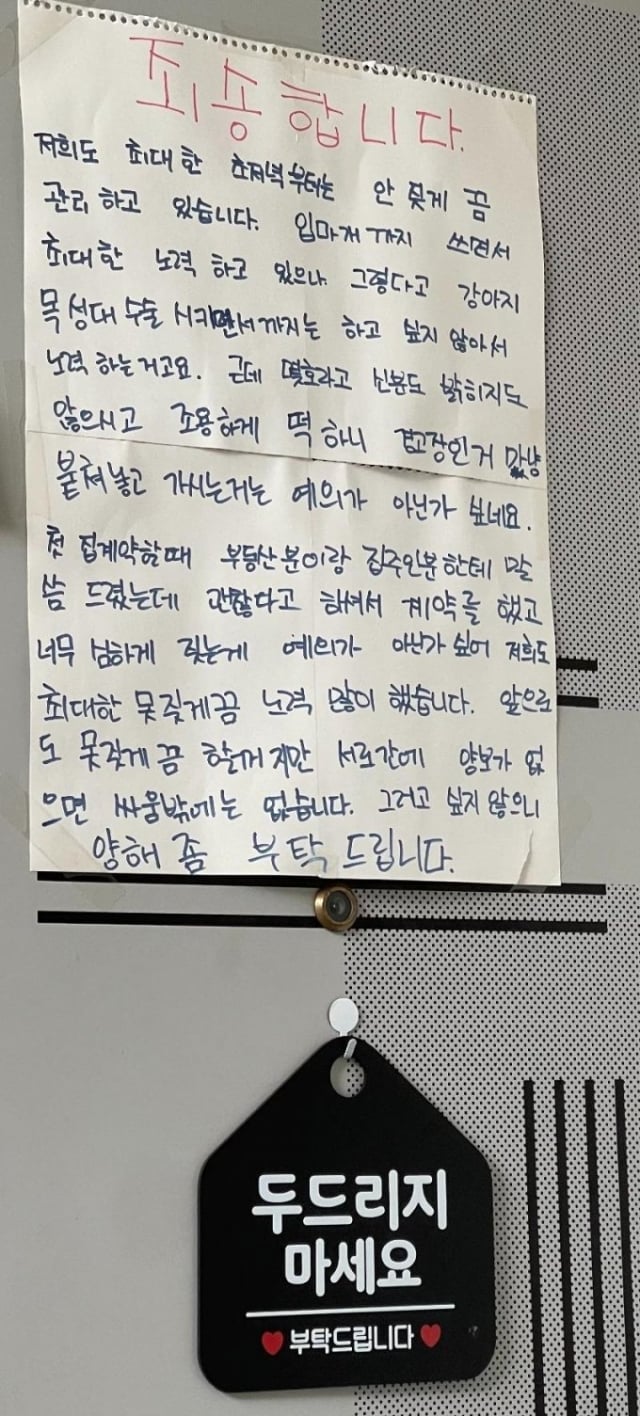 죄송합니다.
저희도 최대한 초저녁부터는 안 짖게 끔
관리 하고 있습니다. 입마개까지 쓰면서
최대한 노력 하고 있으나 그렇다고 강아지
목 성대 수술 시키면서까지는 하고 싶지 않아서
노력 하는거고요. 근데 몇호라고 신분도 밝히지도
않으시고 조용하게 떡 하니 경고장인거 마냥
붙쳐놓고 가시는거는 예의가 아닌가 싶네요.
첫 집계약할때 부동산분이랑 집주인분한테 말
씀 드렸는데 괜찮다고 하셔서 계약를 했고
너무 심하게 짖는게 예의가 아닌가 싶어 저희도
최대한 못짖게끔 노력 많이 했습니다. 앞으로
도 못짖게끔 할꺼지만 서로간에 양보가 없
으면 싸움밖에는 없습니다. 그러고 싶지 않으니
양해 좀 부탁 드립니다.
두드리지
마세요
부탁드립니다